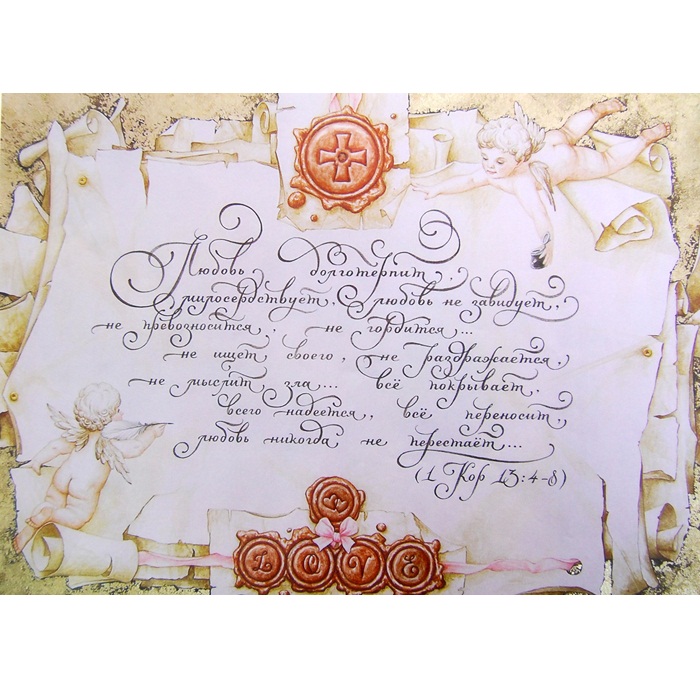 Любовь долготерпит,
милосердствует, любовь не завидует,
не превозносится, не гордится...
не ищет своего, не раздражается,
не мыслит зла... всё покрывает,
всего надеется, всё переносит,
любовь никогда не перестаёт...
(1 Кор 13:4-8)
LOVE